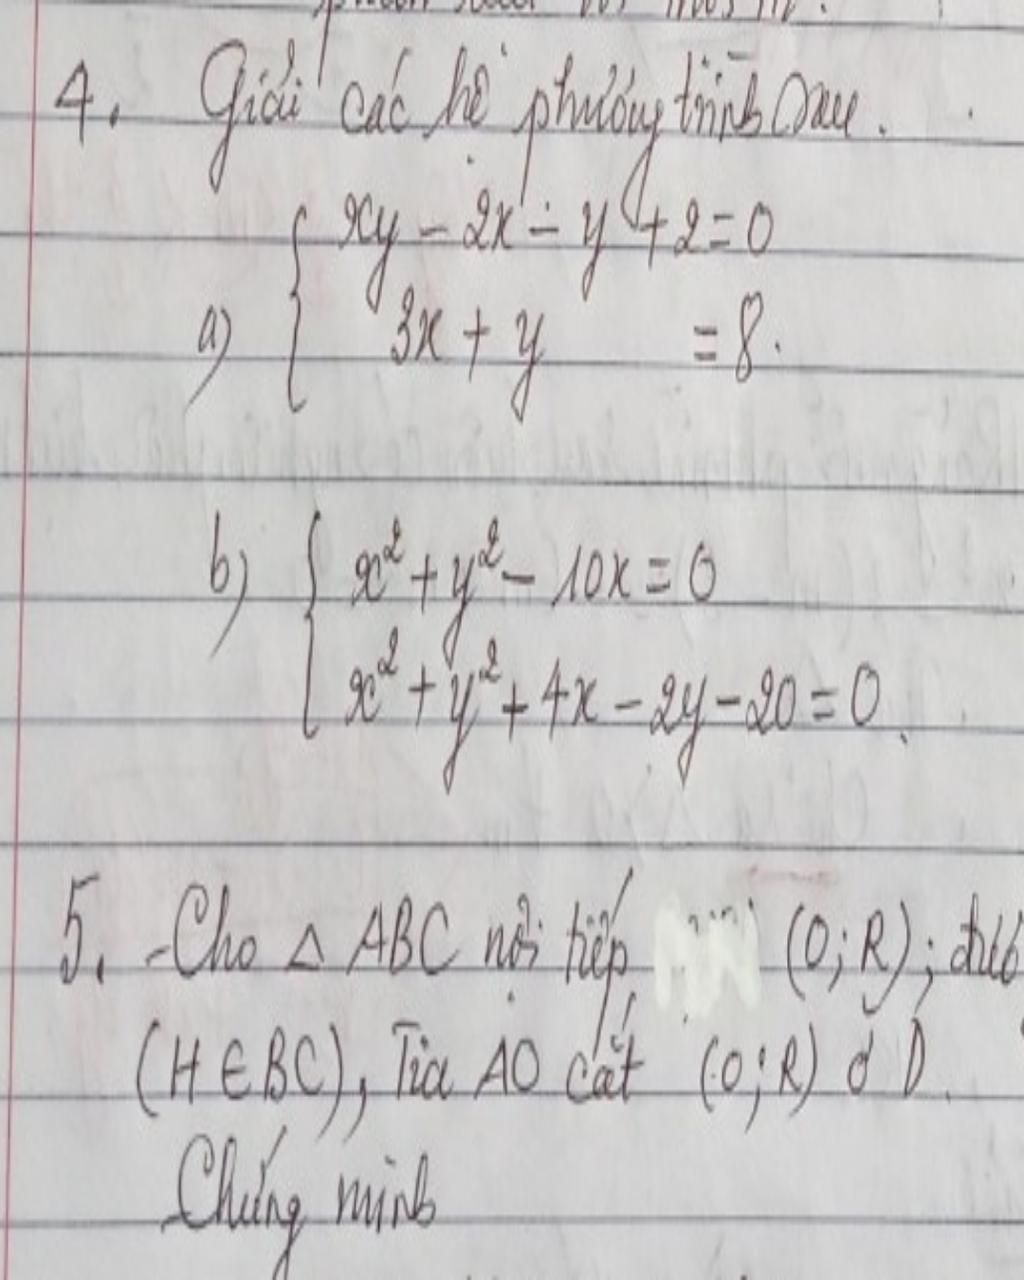 4. Giải các hệ phương trình sau.
a) { xy - 2x - y + 2 = 0
3x + y = 8.
b) { x² + y² - 10x = 0
x² + y² + 4x - 2y - 20 = 0.
5. Cho △ ABC nội tiếp (O; R);
(H ∈ BC), Tia AO cắt (O; R) ở D.
Chứng minh